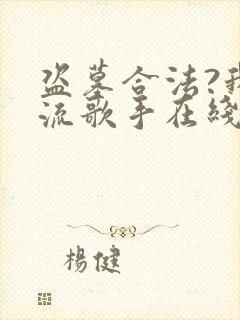 盗墓合法?我
流歌手在綫
楊健